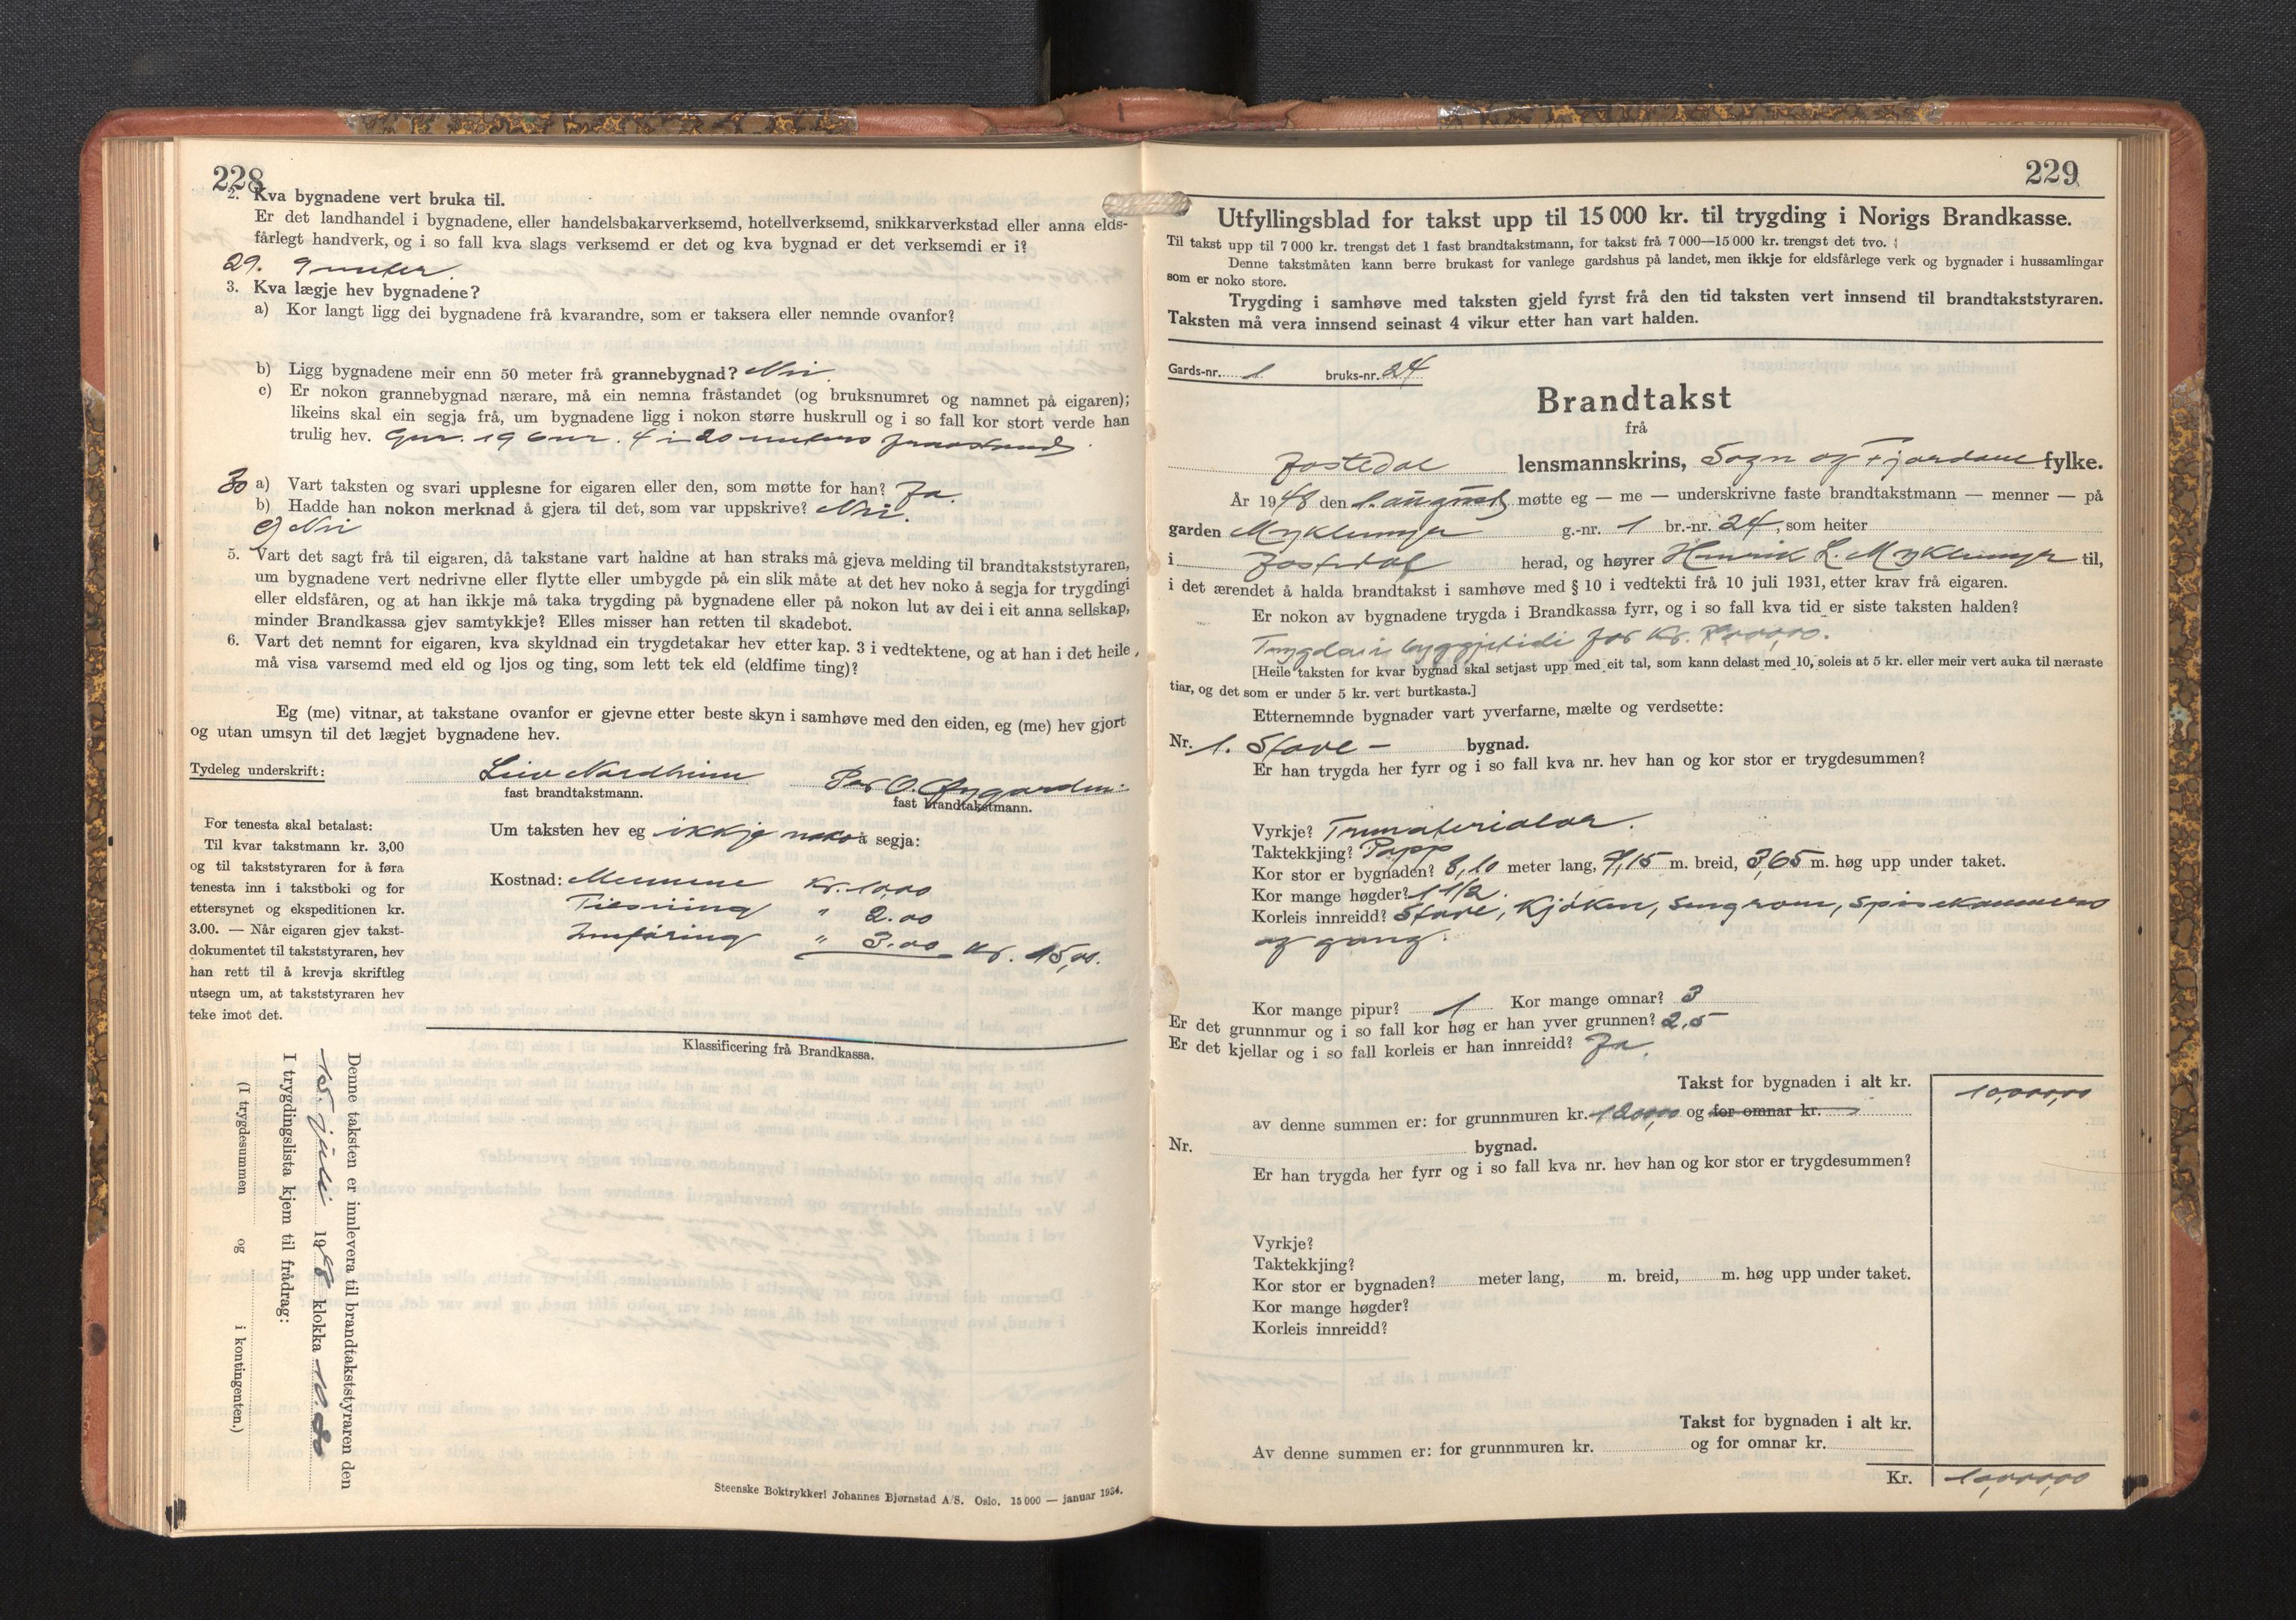 228
2. Kva bygnadene vert bruka til.
Er det landhandel i bygnadene, eller handelsbakarverksemd, hotellverksemd, snikkarverkstad eller anna elds-
fårlegt handverk, og i so fall kva slags verksemd er det og kva bygnad er det verksemdi er i?
29. 9 meter.
3. Kva lægje hev bygnadene?
a) Kor langt ligg dei bygnadene frå kvarandre, som er taksera eller nemnde ovanfor?
b) Ligg bygnadene meir enn 50 meter frå grannebygnad? Nei.
c) Er nokon grannebygnad nærare, må ein nemna fråstandet (og bruksnumret og namnet på eigaren);
likeins skal ein segja frå, um bygnadene ligg i nokon større huskrull og i so fall kor stort verde han
trulig hev. Gnr. 19 bnr. 4 i 20 meters fraastand.
30 a) Vart taksten og svari upplesne for eigaren eller den, som møtte for han? Ja.
b) Hadde han nokon merknad å gjera til det, som var uppskrive? Nei.
c) Nei
5. Vart det sagt frå til eigaren, då takstane vart haldne at han straks må gjeva melding til brandtakststyraren,
um bygnadene vert nedrivne eller flytte eller umbygde på ein slik måte at det hev noko å segja for trygdingi
eller eldsfåren, og at han ikkje må taka trygding på bygnadene eller på nokon lut av dei i eit anna sellskap,
minder Brandkassa gjev samtykkje? Elles misser han retten til skadebot.
6. Vart det nemnt for eigaren, kva skyldnad ein trygdetakar hev etter kap. 3 i vedtektene, og at han i det heile,
må visa varsemd med eld og ljos og ting, som lett tek eld (eldfime ting)?
Eg (me) vitnar, at takstane ovanfor er gjevne etter beste skyn i samhøve med den eiden, eg (me) hev gjort
og utan umsyn til det lægjet bygnadene hev.
Tydeleg underskrift: Leiv Nordheim Per O. Øygarden.
fast brandtakstmann. fast brandtakstmann.
For tenesta skal betalast:
Til kvar takstmann kr. 3,00
og til takststyraren for å føra
tenesta inn i takstboki og for
ettersynet og ekspeditionen kr.
3.00. — Når eigaren gjev takst-
dokumentet til takststyraren, hev
han rett til å krevja skriftleg
utsegn um, at takststyraren hev
teke imot det.
Um taksten hev eg ikkje noko å segja:
Kostnad: Mennene kr. 10,00
" 2.00
Innføring " 3.00 kr. 15,00.
Klassificering frå Brandkassa.
Denne taksten er innlevera til brandtakststyraren den
15. juli 1948 klokka 10.
I trygdingslista kjem til frådrag:
(I trygdesummen og i kontingenten.)
Steenske Boktrykkeri Johannes Bjørnstad A/S. Oslo. 15 000 — januar 1934.
229
Utfyllingsblad for takst upp til 15 000 kr. til trygding i Norigs Brandkasse.
Til takst upp til 7 000 kr. trengst det 1 fast brandtakstmann, for takst frå 7 000—15 000 kr. trengst det tvo.
Denne takstmåten kann berre brukast for vanlege gardshus på landet, men ikkje for eldsfårlege verk og bygnader i hussamlingar
som er noko store.
Trygding i samhøve med taksten gjeld fyrst frå den tid taksten vert innsend til brandtakststyraren.
Taksten må vera innsend seinast 4 vikur etter han vart halden.
Gards-nr. 1 bruks-nr. 24
Brandtakst
frå
Jostedal lensmannskrins, Sogn og Fjordane fylke.
År 1948 den 1. august møtte eg — me — underskrivne faste brandtakstmann — menner — på
garden Myklemyr g.-nr. 1 br.-nr. 24, som heiter
i Jostedal herad, og høyrer Henrik L. Myklemyr til,
i det ærendet å halda brandtakst i samhøve med § 10 i vedtekti frå 10 juli 1931, etter krav frå eigaren.
Er nokon av bygnadene trygda i Brandkassa fyrr, og i so fall kva tid er siste taksten halden?
Trygda i byggjetidi for kr.
[Heile taksten for kvar bygnad skal setjast upp med eit tal, som kann delast med 10, soleis at 5 kr. eller meir vert auka til næraste
tiar, og det som er under 5 kr. vert burtkasta.]
Etternemnde bygnader vart yverfarne, mælte og verdsette:
Nr. 1. Stove- bygnad.
Er han trygda her fyrr og i so fall kva nr. hev han og kor stor er trygdesummen?
Vyrkje? Trematerialer.
Taktekkjing? Papp
Kor stor er bygnaden? 8,10 meter lang, 7,15 m. breid, 3,65 m. høg upp under taket.
Kor mange høgder? 1 1/2.
Korleis innreidd? Stove, kjøken, sengrom, spisekammers
og gang.
Kor mange pipur? 1 Kor mange omnar? 3
Er det grunnmur og i so fall kor høg er han yver grunnen? 2,5
Er det kjellar og i so fall korleis er han innreidd? Ja.
Takst for bygnaden i alt kr. 10,000,00
av denne summen er: for grunnmuren kr. og for omnar kr.
Nr. bygnad.
Er han trygda her fyrr og i so fall kva nr. hev han og kor stor er trygdesummen?
Vyrkje?
Taktekkjing?
Kor stor er bygnaden? meter lang, m. breid, m. høg upp under taket.
Kor mange høgder?
Korleis innreidd?
Takst for bygnaden i alt kr.
Av denne summen er: for grunnmuren kr. og for omnar kr.
Kr. 10,000,00